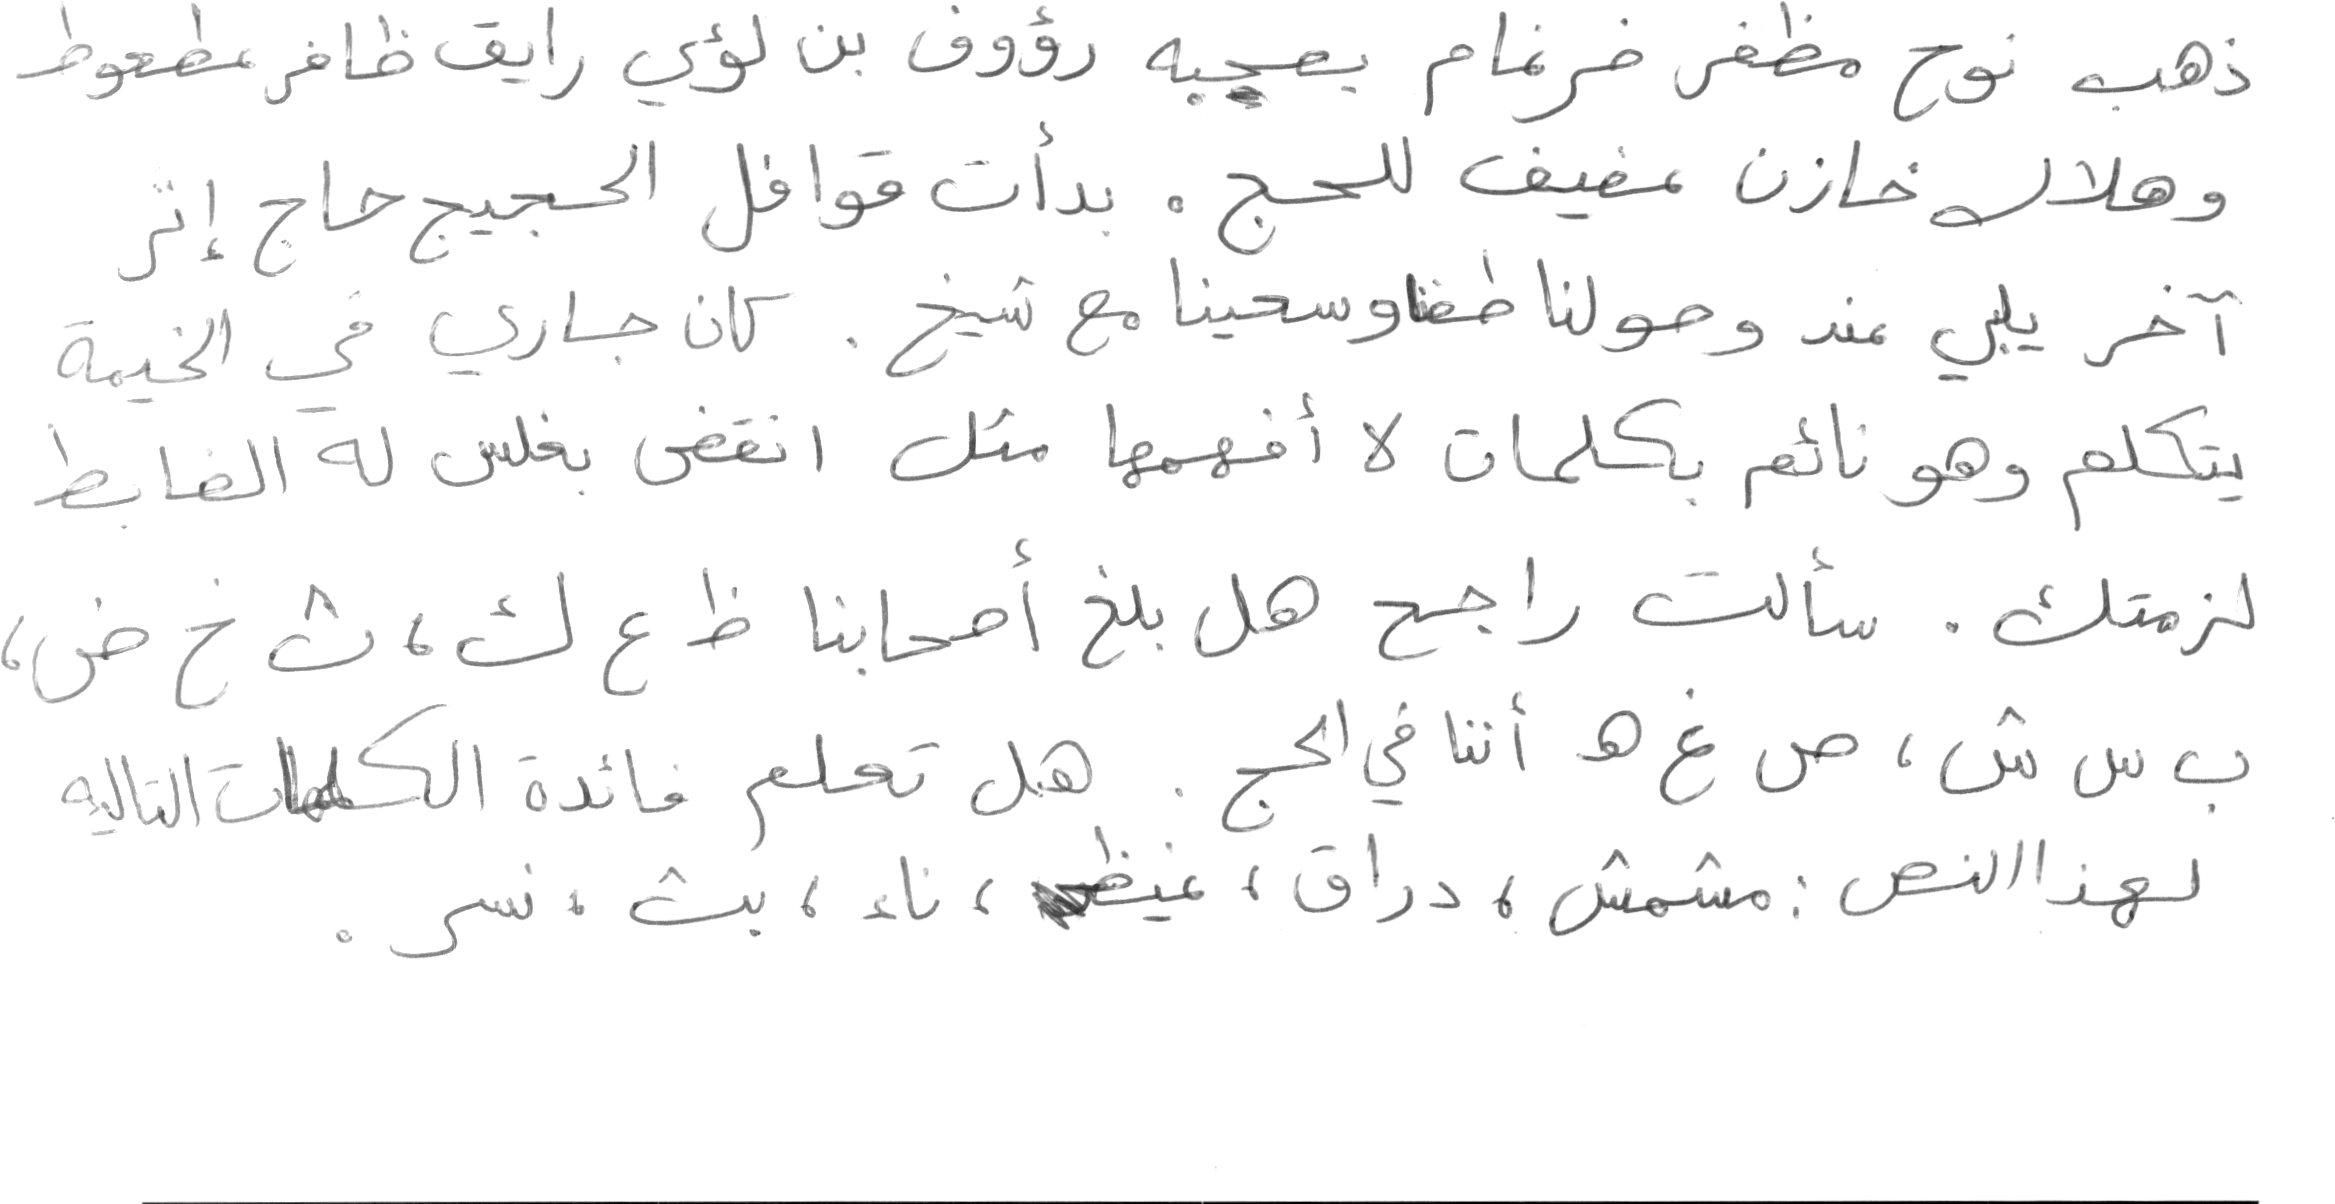 ذهب نوح مظفر ضرغام بصحبه رؤوف بن لؤي رايق ظافر عطعوط
وهلال خازن عفيف للحج . بدأت قوافل الحجيج حاج إثر
آخر يلبي عند وصولنا طفنا وسعينا مع شيخ . كان جاري في الخيمة
يتكلم وهو نائم بكلمات لا أفهمها مثل انقض بغلس له الضابط
لزمتك . سألت راجح هل بلغ أصحابنا ظ ع ك ، ث خ ض ،
ب س ش ، ص غ هـ أننا في الحج . هل تعلم فائدة الكلمات التاليه
لهذا النص : مشمش ، دراق ، غيظ ، ناء ، بث ، نسر .